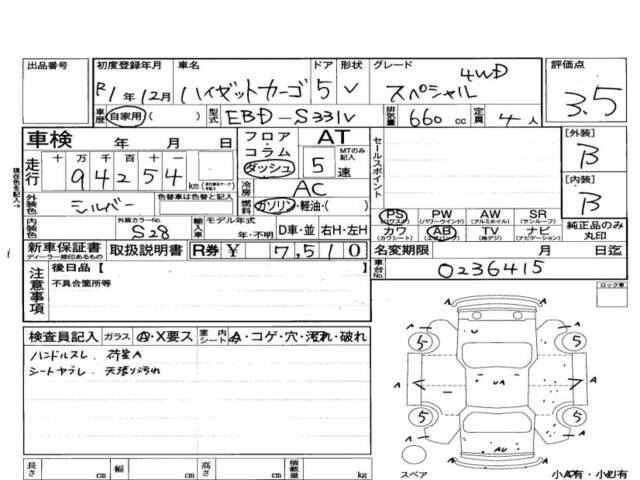 出品番号 初度登録年月 車名 ドア 形状 グレード 評価点
R1年12月 ハイゼットカーゴ 5 V スペシャル 4WD 3.5
車歴 自家用( ) 型式 EBD-S331V 排気量 660 cc 定員 4人
車検 年 月 日 フロア・コラム・ダッシュ AT MTのみ記入 5速 セールスポイント [外装] B
走行 十 万 千 百 十
94254 km
冷房 AC [内装] B
現在色を記入→
外装色 シルバー 色替車は色替と記入 燃料 ガソリン・軽油・( )
PS (パワステ) PW (パワーウインド) AW (アルミホイル) SR (サンルーフ)
内装色 外装カラーNo. S28 輸入車 モデル年式 年・不明 D車・並 右H・左H カワ (カワシート) AB (エアバッグ) TV (地デジ) ナビ (ナビゲーション) 純正品のみ丸印
新車保証書 ディーラー捺印あるもの 取扱説明書 R券 ¥ 7,510 名変期限 月 日迄
注意事項 後日品[ ] 車台No. 0236415
不具合箇所等 ロック車
検査員記入 ガラス A・X要ス 室内シート A・コゲ・穴・汚れ・破れ
ハンドルスレ、荷室A
シートヤブレ、天張り汚れ
A A
5 5
A UA A
5 5
AU
A
長さ cm 幅 cm 高さ cm 積載量 kg スペア 小A有・小U有